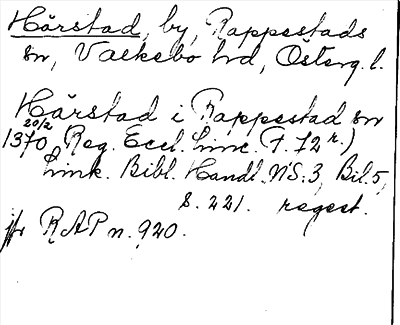 Hårstad, by, Rappestads
sn, Valkebo hd, Österg. l.
Hårstad i Rappestad sn
20/2
1370, Reg. Eccl. Linc. (P. 72 r.)
Link. Bibl. Handl. NS: 3, Bil. 5,
s. 221. regest.
jfr RAP n. 920.